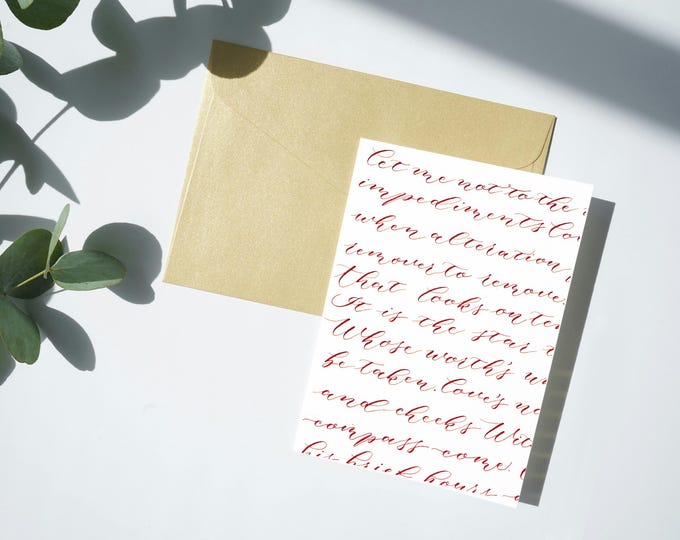 let me not to the
impediments lo
when alteration
remover to remove.
that looks on tem
It is the star
Whose worth's un
be taken. love's no
and cheeks Wit
compass come.
his brief hours